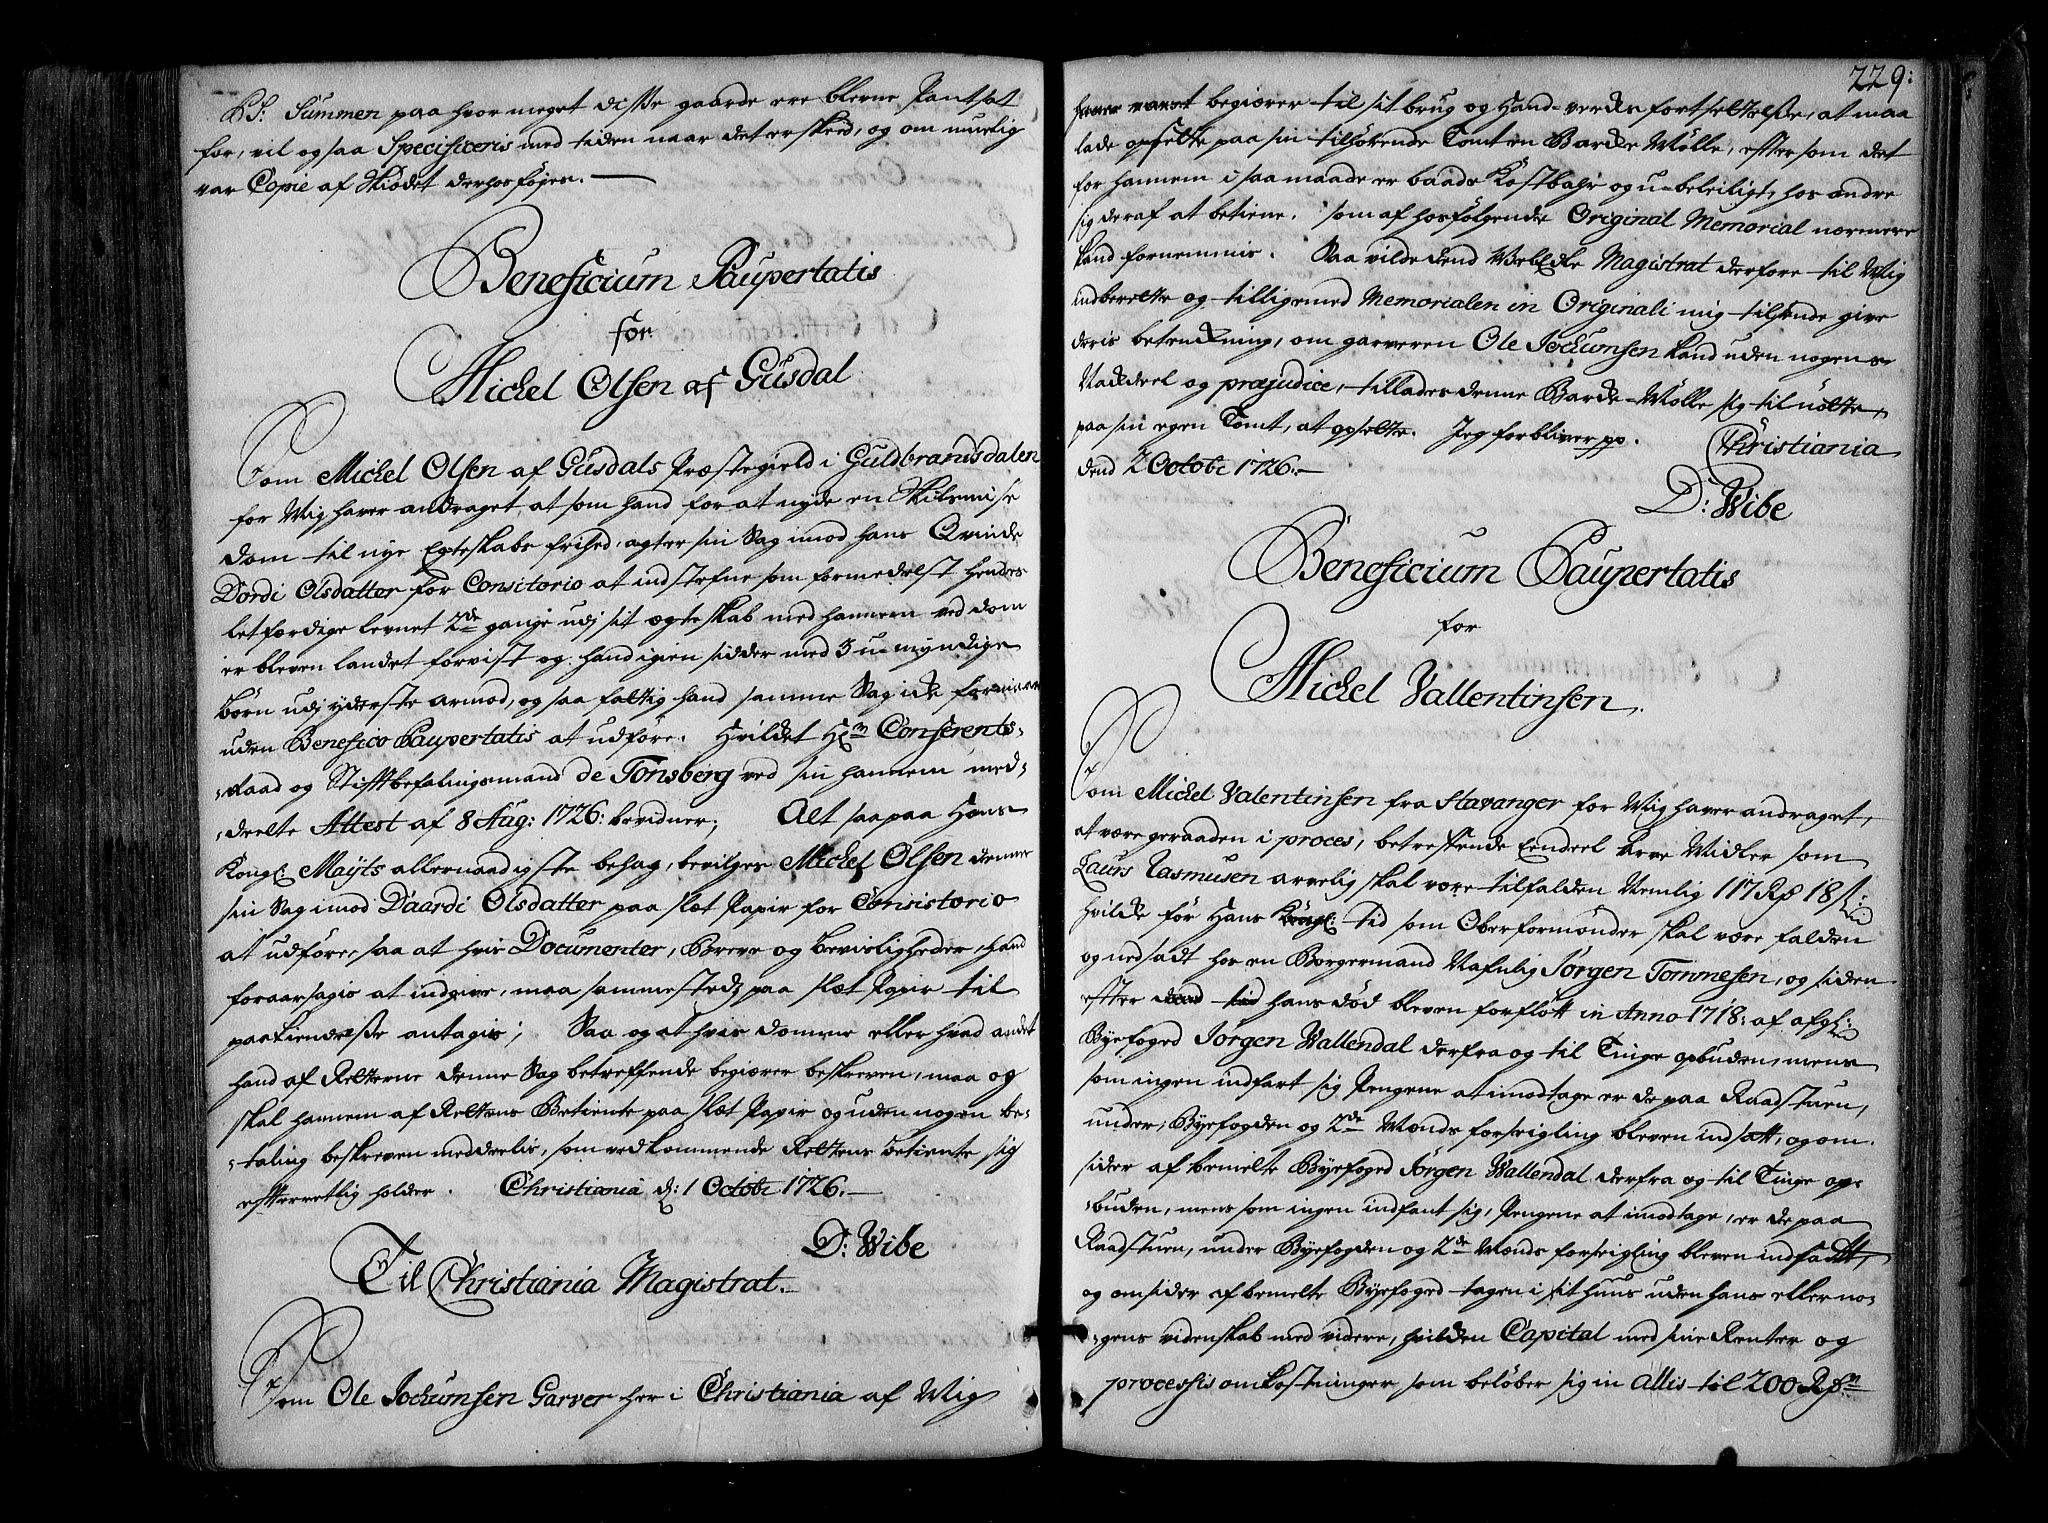 PS: Summen paa hvor meget disse gaarde ere blevne Pantsat
for, vil og saa Specificeris med tiden naar det er skeed, og om muelig
var Copie af Skiødet derhos føjes.
Beneficium Paupertatis
for
Michel Olsen af Gusdal
Som Michel Olsen af Gusdals Præstegield i Guldbrandsdalen
for Mig haver andraget at som hand for at nyde en Skilsmise
dom til nye Egteskabs frihed, agter sin Sag imod hans Qvinde
Dordi Olsdatter for Consitorio at indstefne som formedelst hendes
letfærdige levnet 2de gange udj sit ægteskab med hannem ved dom
er bleven landet forvist og hand igien sidder med 3 u-myndige
Børn udj yderste armod, og saa fattig hand samme Sag icke formaar
uden Benefico Paupertatis at udføre. Hvilcket Hr Conferents-
Raad og Stiftbefalingsmand de Tonsberg ved sin hannem med-
deelte Attest af 8 Aug: 1726: bevidner; Alt saa paa Hans
Kongl: Mayts allernaadigste behag, bevilges Michel Olsen denne
sin Sag imod Daardi Olsdatter paa slæt Papir for Consistorio
at udføre, saa at hvis Documenter, Breve og beviisligheder, hand
foraarsagis at indgive, maa sammesteds paa slæt Papir til
paakiendelse antagis; Saa og at hvis domme eller hvad andet
hand af Retterne denne Sag betreffende begiærer beskreven, maa og
skal hannem af Rettens Betiente paa slæt Papir og uden nogen be-
taling beskreven meddeelis, som vedkommende Rettens betiente sig
efterrettlig holder. Christiania d: 1 Octobr 1726.
D: Wibe
Til Christiania Magistrat.
Som Ole Jochumsen Garver her i Christiania af Mig
229:
haver begiærer til sit brug og Hand-vercks fortsettelse, at maa
lade opsette paa sin tilhørende Tomt en Barcke Mølle, eftersom det
for hannem i saa maade er baade Kostbahr og u-beleiligt, hos andre
sig deraf at betiene. som af hosfølgende Original Memorial nærmere
kand fornemmis. Saa vilde dend Velædle Magistrat derfore til Mig
indberette og tilligemed Memorialen in Originali mig tilsende give
deris betenckning, om garveren Ole Jochumsen kand uden nogens
Naddeel og præjudice, tillades denne Barcke-Mølle sig til nøtte,
paa sin egen Tomt, at opsette. Jeg forbliver pp. Christiania
dend 2 Octobr 1726.
D: Wibe
Beneficium Paupertatis
for
Michel Vallentinsen.
Som Michel Valentinsen fra Stavanger for Mig haver andraget,
at være geraaden i proces, betreffende Eendeel Arve Midler som
Laurs Rasmusen arvelig skal være tilfalden Nemlig 117 Rd 18 s:
hvilcke før Hans Kongl: tid som Oberformynder skal være falden
og nedsadt hos en Borgermand Nafnlig Jørgen Tommesen, og siden
efter dend tid hans død bleven forfløtt in Anno 1718: af afgl:
Byefoged Jørgen Wallendal derfra og til Tinge opbuden, mens
som ingen indfant sig Pengene at imodtage er de paa Raadstuen,
under Byefogden og 2de Mænds forseigling bleven indsatt, og om-
sider af bemelte Byefoged Jørgen Wallendal derfra og til Tinge op-
buden, mens som ingen indfant sig, Pengene at imodtage, er de paa
Raadstuen, under Byefogden og 2de Mænds forseigling bleven indsadt,
og omsider af bemelte Byefoged tagen i sit huus uden hans eller no-
gens videnskab med videre, hvilcken Capital med sine Renter og
processis omkostninger som beløber sig in allis til 200 Rdr